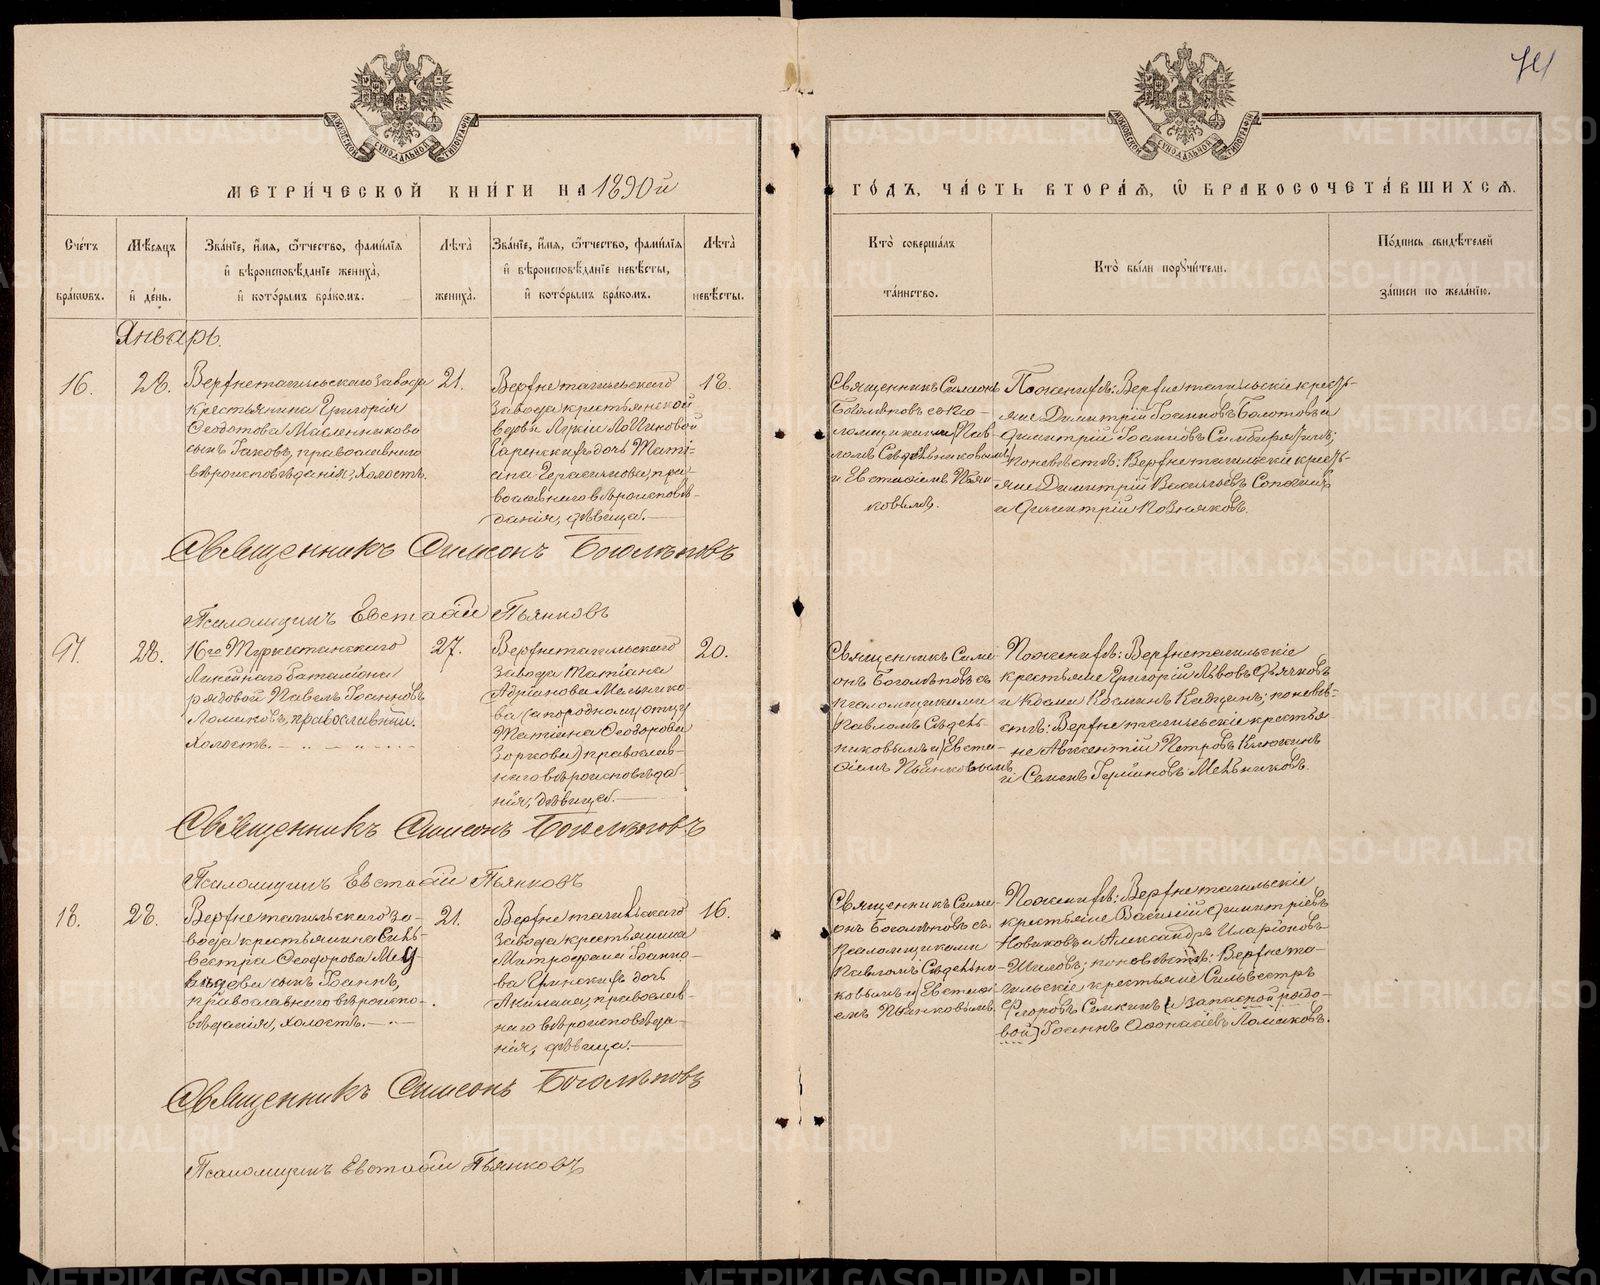 741
МОСКОВСКОЙ СѴНОДАЛЬНОЙ ТИПОГРАФІИ
МОСКОВСКОЙ СѴНОДАЛЬНОЙ ТИПОГРАФІИ
МЕТРИ́ЧЕСКОЙ КНИ́ГИ НА 1890й
ГО́ДЪ, ЧА́СТЬ ВТОРА́Ѧ, Ѡ БРАКОСОЧЕТА́ВШИХСѦ.
Сче́тъ бра́кѡвъ.
Мѣ́сѧцъ и҆ де́нь.
Зва́нїе, и҆́мѧ, ѻ҆́тчество, фами́лїѧ и҆ вѣроисповѣ́данїе жениха̀, и҆ кото́рымъ бра́комъ.
Лѣ́та жениха̀.
Зва́нїе, и҆́мѧ, ѻ҆́тчество, фами́лїѧ и҆ вѣроисповѣ́данїе невѣ́сты, и҆ кото́рымъ бра́комъ.
Лѣ́та невѣ́сты.
Кто̀ соверша́лъ та́инство.
Кто̀ бы́ли порꙋчи́тели.
По́дпись свидѣ́телей за́писи по жела́нїю.
Январь.
16.
28.
Верхнетагильскаго завода
крестьянина Григорія
Ѳеодотова Масленникова
сынъ Іаковъ, православнаго
вѣроисповѣданія, холостъ.
21.
Верхнетагильскаго
завода крестьянской
вдовы
дочь Тати-
ана Герасимова, пра-
вославнаго вѣроисповѣ-
данія, дѣвица.
18.
Священникъ Симеонъ
Боголѣповъ съ пса-
ломщиками Пав-
ломъ Сѣдельниковымъ
и Евстаѳіемъ Пьян-
ковымъ.
По женихѣ: Верхнетагильскіе кресть-
яне Димитрій Іоанновъ Болотовъ и
Димитрій Іоанновъ
по невѣстѣ: Верхнетагильскіе кресть-
яне Димитрій Васильевъ
и Димитрій Позняковъ.
Священникъ Симеонъ Боголѣповъ
Псаломщикъ Евстаѳій Пьянковъ
17.
28.
16го Туркестанскаго
Линейнаго баталіона
рядовой Павелъ Іоанновъ
Ломаковъ, православный.
Холостъ.
27.
Верхнетагильскаго
завода Татіана
Адріанова Мельнико-
ва (а по родному отцу
Татіана Ѳеодорова
Зоркова) православ-
наго вѣроисповѣда-
нія, дѣвица.
20.
Священникъ Симе-
онъ Боголѣповъ съ
псаломщиками
Павломъ Сѣдель-
никовымъ и Евста-
ѳіемъ Пьянковымъ
По женихѣ: Верхнетагильскіе
крестьяне Григорій Львовъ Дьячковъ
и Косма Косминъ по невѣ-
стѣ: Верхнетагильскіе крестья-
не Авксентій Петровъ Клюкинъ
и Семенъ Мельниковъ.
Священникъ Симеонъ Боголѣповъ
Псаломщикъ Евстаѳій Пьянковъ
18.
28.
Верхнетагильскаго за-
вода крестьянина Силь-
вестра Ѳеодорова Мед-
вѣдева сынъ Іоаннъ,
православнаго вѣроиспо-
вѣданія, холостъ.
21.
Верхнетагильскаго
завода крестьянина
Митрофана Іоанно-
ва дочь
православ-
наго вѣроисповѣда-
нія, дѣвица.
16.
Священникъ Симе-
онъ Боголѣповъ съ
псаломщиками
Павломъ Сѣдельни-
ковымъ и Евстаѳі-
емъ Пьянковымъ.
По женихѣ: Верхнетагильскіе
крестьяне Василій Димитріевъ
Новиковъ и Александръ Иларіоновъ
Шиловъ; по невѣстѣ: Верхнета-
гильскіе крестьяне Сильвестръ
Ѳедоровъ Семкинъ и запасной рядо-
вой Іоаннъ Аѳанасіевъ Ломаковъ.
Священникъ Симеонъ Боголѣповъ
Псаломщикъ Евстаѳій Пьянковъ
METRIKI.GASO-URAL.RU